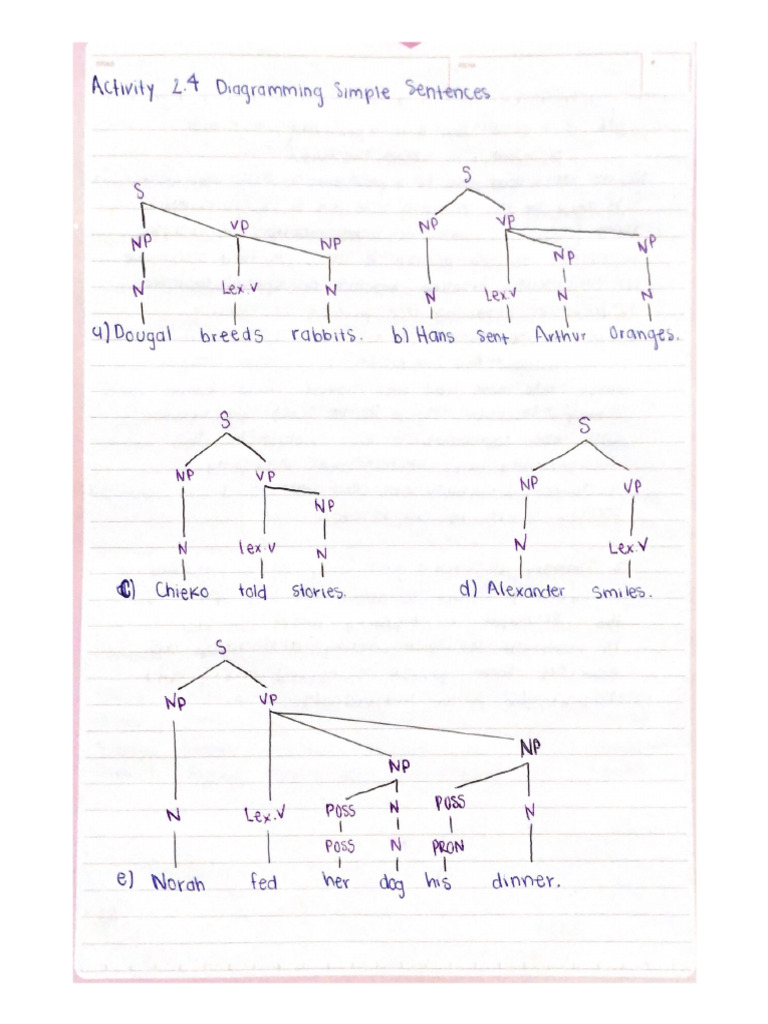 Activity 2.4 Diagramming Simple Sentences
S
S
NP VP NP
NP VP NP NP
N Lex.V N
N Lex.V N N
a) Dougal breeds rabbits. b) Hans sent Arthur Oranges.
S
S
NP VP NP
NP VP
N lex.v N
N Lex.V
c) Chieko told stories. d) Alexander smiles.
S
NP VP
NP NP
N Lex.V POSS N POSS N
POSS N PRON
e) Norah fed her dog his dinner.